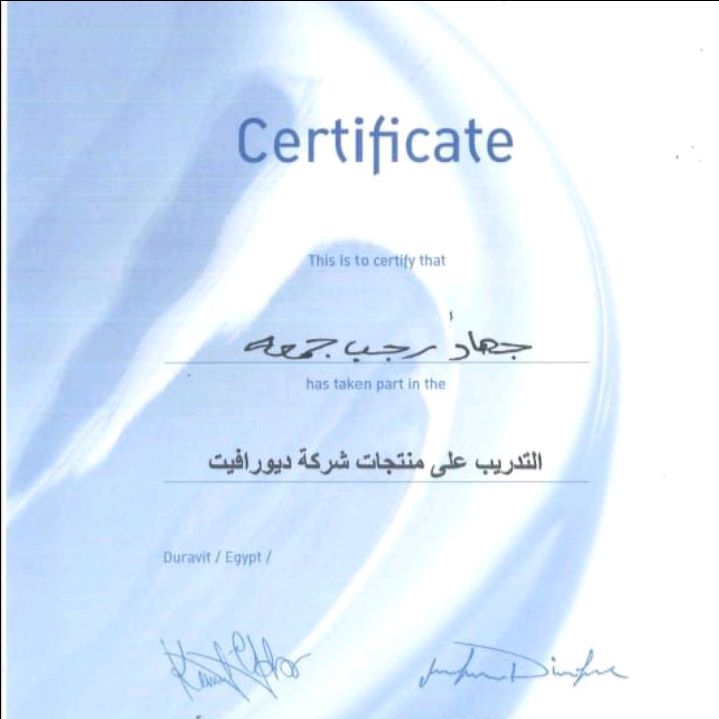 Certificate
This is to certify that
جهاد رجب جمعه
has taken part in the
التدريب على منتجات شركة ديورافيت
Duravit / Egypt /